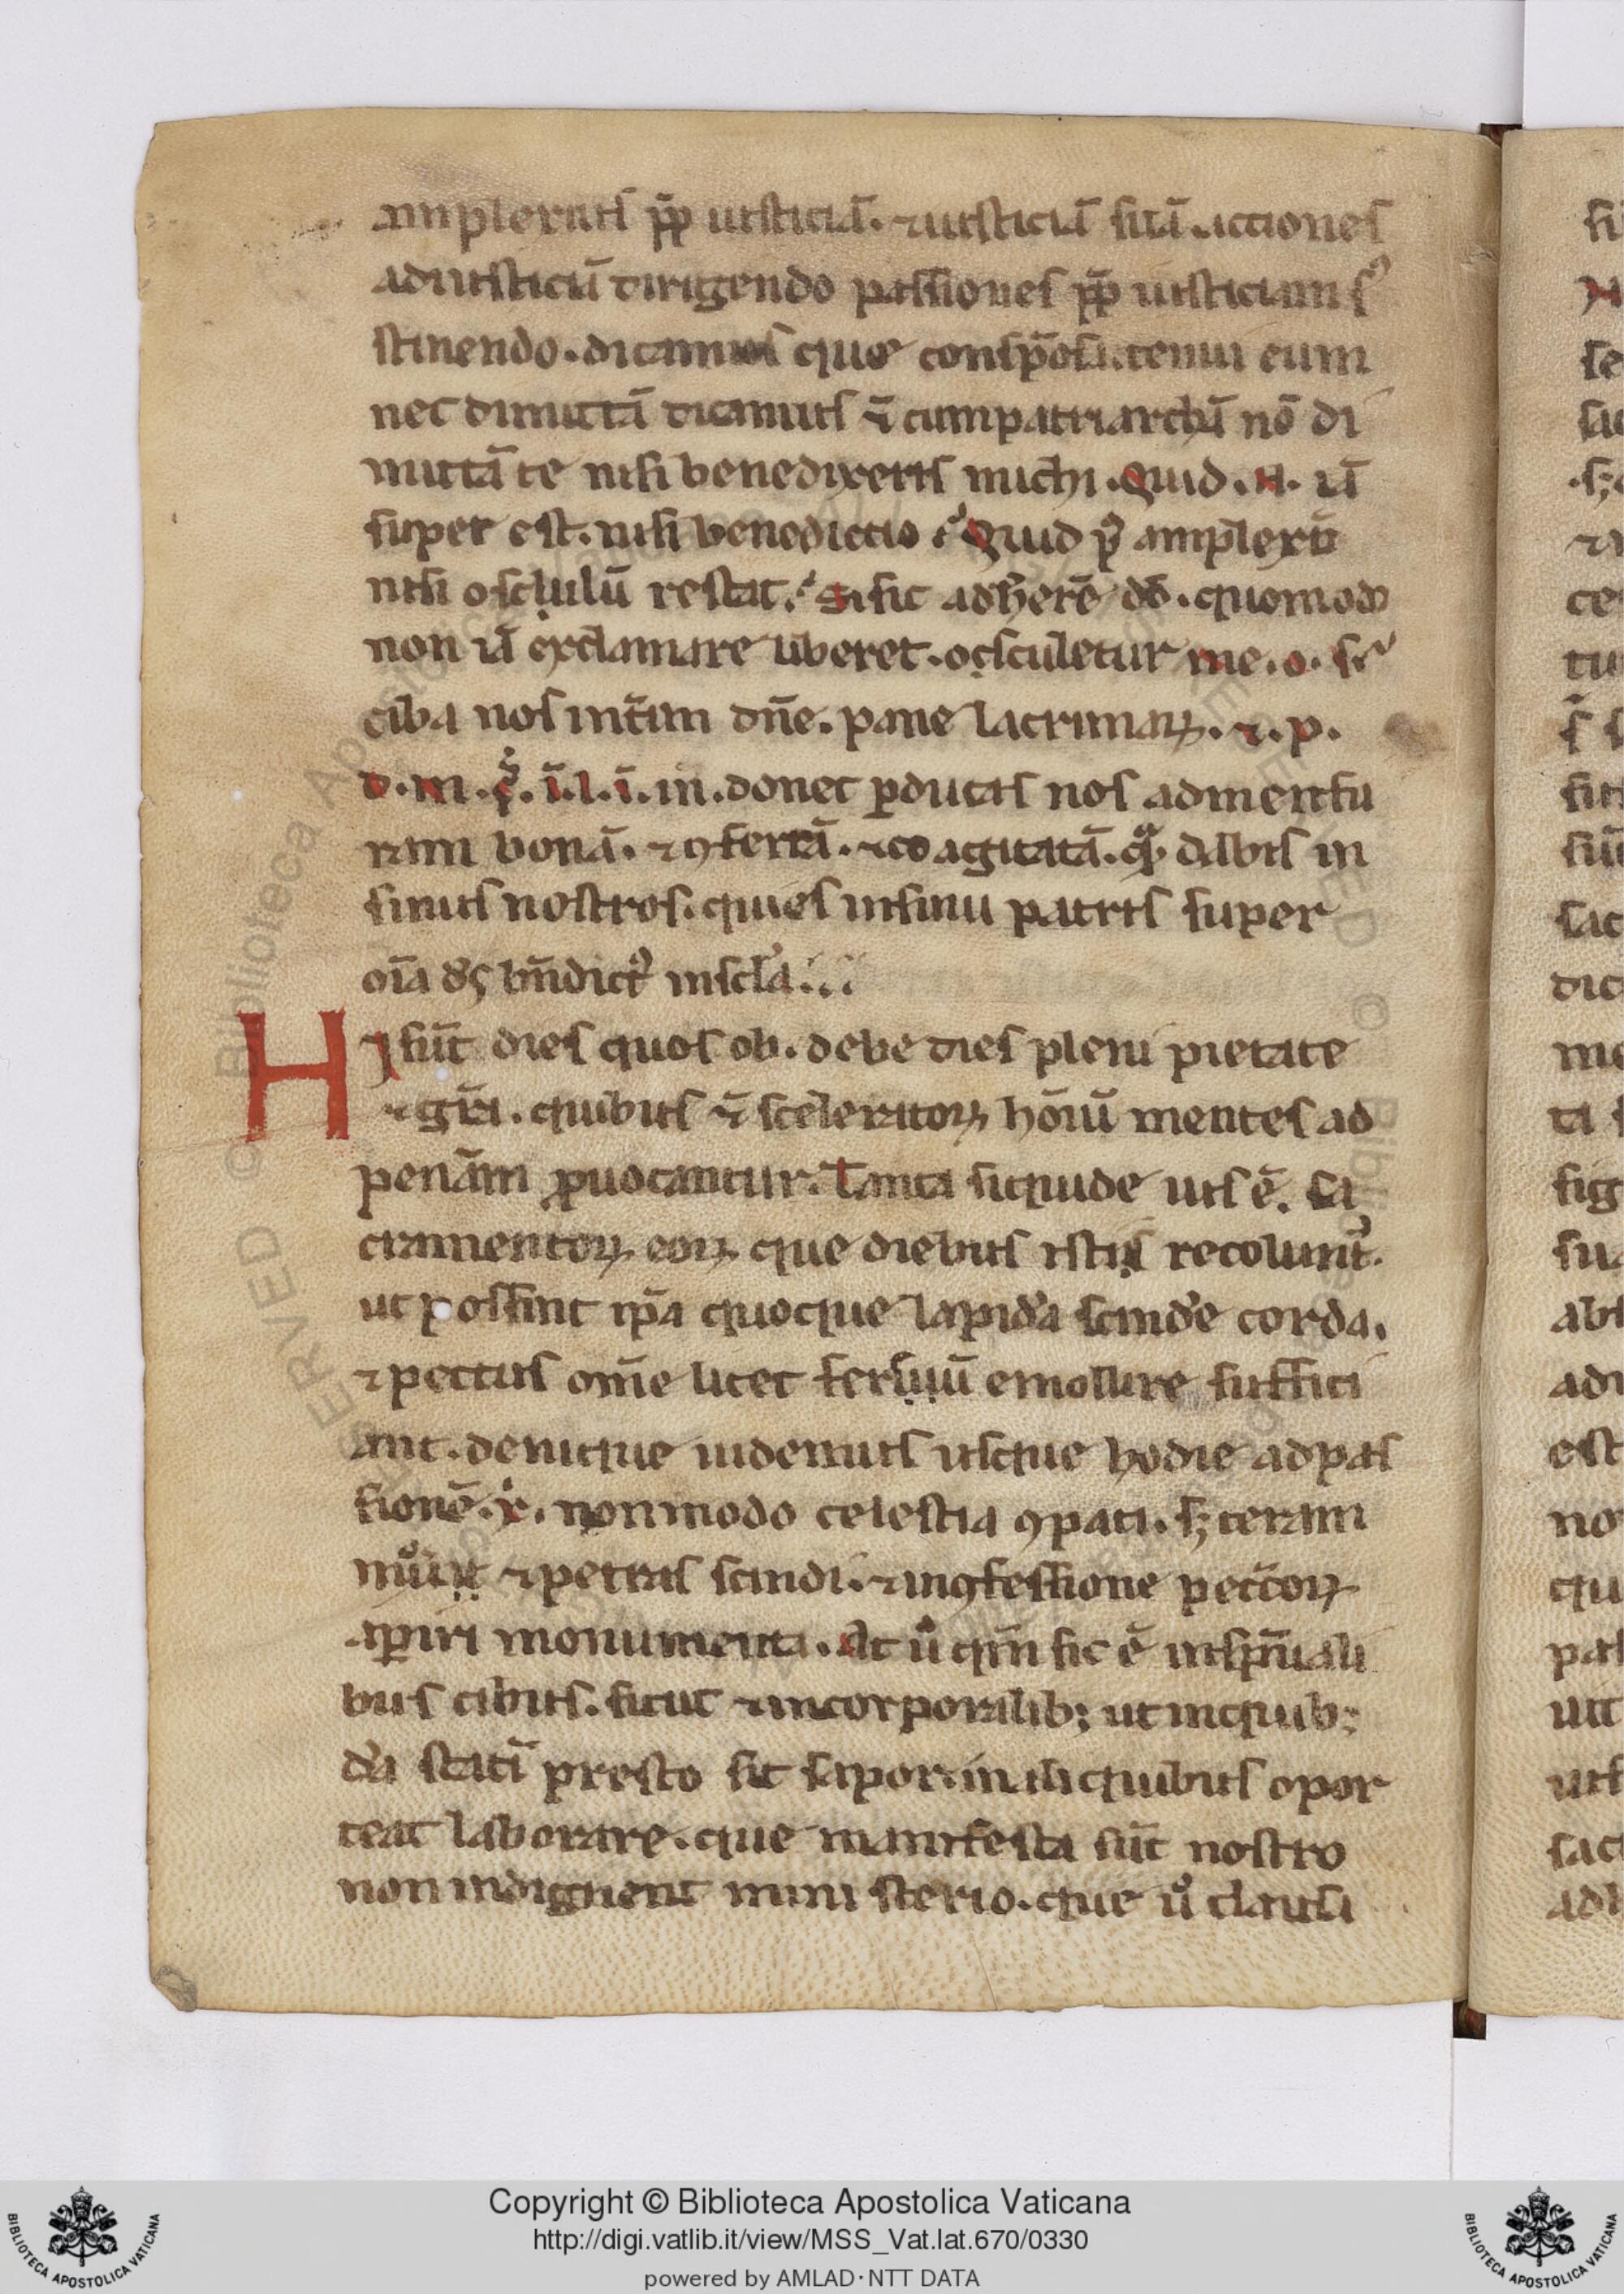 amplexatis p̄p iusticiā. ⁊ iusticiā suā. acciones
ad iusticiā dirigendo passiones p̄p iusticiam sꝰ
stinendo. dicamus que cum sp̄osa. tenui eum
nec dimittā dicamus ⁊̄ cum patriarchā nō di
mittā te nisi benedixeris michi. Quid. n. iā
super est. nisi benedictio? Quid pꝰ amplexū
nisi osclulū restat? Si sic adh̄erē dō. quomodo
non iā exclamare liberet. ocsculetur me. o. s.
ciba nos int̄im dn̄e. pane lacrimaꝝ. ⁊. p.
d. n. q̄. ī. l. ī. m. donec ꝑducas nos ad mensu
ram bonā. ⁊ ꝯfertā. ⁊ co agitatā. q̄ dabis in
sinus nostros. qui es in sinu patris super
oīa ds bn̄dictꝰ in scl̄a.
Hi sūt dies quos ob. debe dies pleni pietate
⁊ gr̄a. quibus ⁊̄ sceleratoꝝ hōīū mentes ad
penām ꝓuocantur. Tanta siquide uis ē. sa
cramentoꝝ eoꝝ que diebus istis recolunt̉.
ut possint ip̄a quoque lapid̉a scind̉e corda.
⁊ pectus om̄e licet ferriuū emollire suffici
ant. denique uidemus usque hodie ad pas
sionē. x̉. non modo celestia ꝯpati. sꝫ teram
mouꝰi ⁊ petras scindi. ⁊ in ꝯfessione pecc̄oꝝ
apꝑiri monumenta. At ū qm̄ sic ē in sp̄ūali
bus cibus. sicut ⁊ in corporalib; ut in quib;
d̄a statī presto sit sapor. in aliquibus opor
teat laborare. que manifesta sūt nostro
non indigent mini sterio. que u̇ clausa
Copyright © Biblioteca Apostolica Vaticana
http://digi.vatlib.it/view/MSS_Vat.lat.670/0330
powered by AMLAD·NTT DATA
BIBLIOTECA APOSTOLICA VATICANA
BIBLIOTECA APOSTOLICA VATICANA